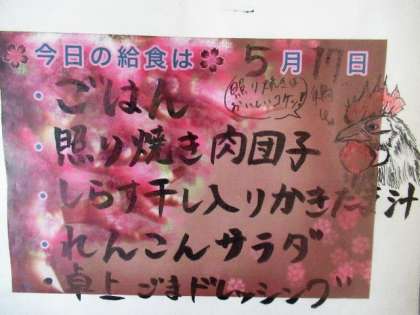 今日の給食は 5月17日
・ごはん
照り焼きは
おいしいコケッ!!
・照り焼き肉団子
・しらす干し入りかきたま汁
・れんこんサラダ
・卓上ごまドレッシング